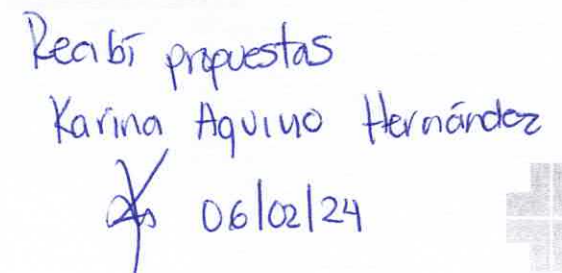 Recibí propuestas
Karina Aquino Hernández
06/02/24